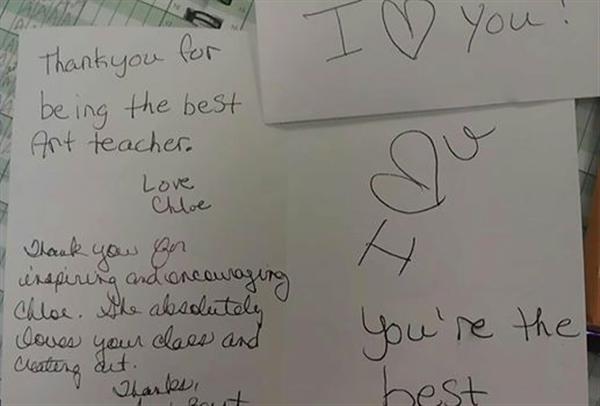 I ♡ you!
Thankyou for
being the best
Art teacher.
Love
Chloe
Thank you for
inspiring and encouraging
Chloe. She absolutely
loves your class and
creating art.
Thanks,
I ♡ U
You're the
best